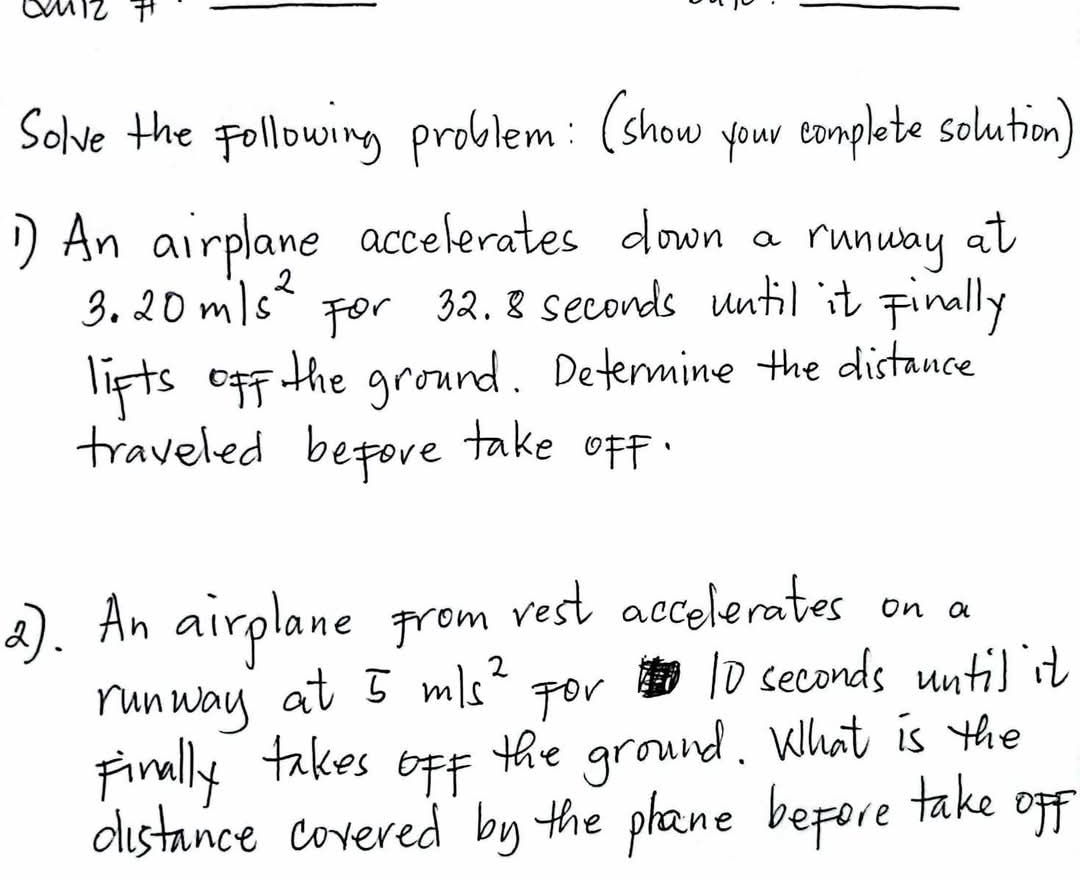 Solve the following problem: (show your complete solution)
1) An airplane accelerates down a runway at
3.20 m/s² for 32.8 seconds until it finally
lifts off the ground. Determine the distance
traveled before take off.
2). An airplane from rest accelerates on a
runway at 5 m/s² for 10 seconds until it
finally takes off the ground. What is the
distance covered by the plane before take off